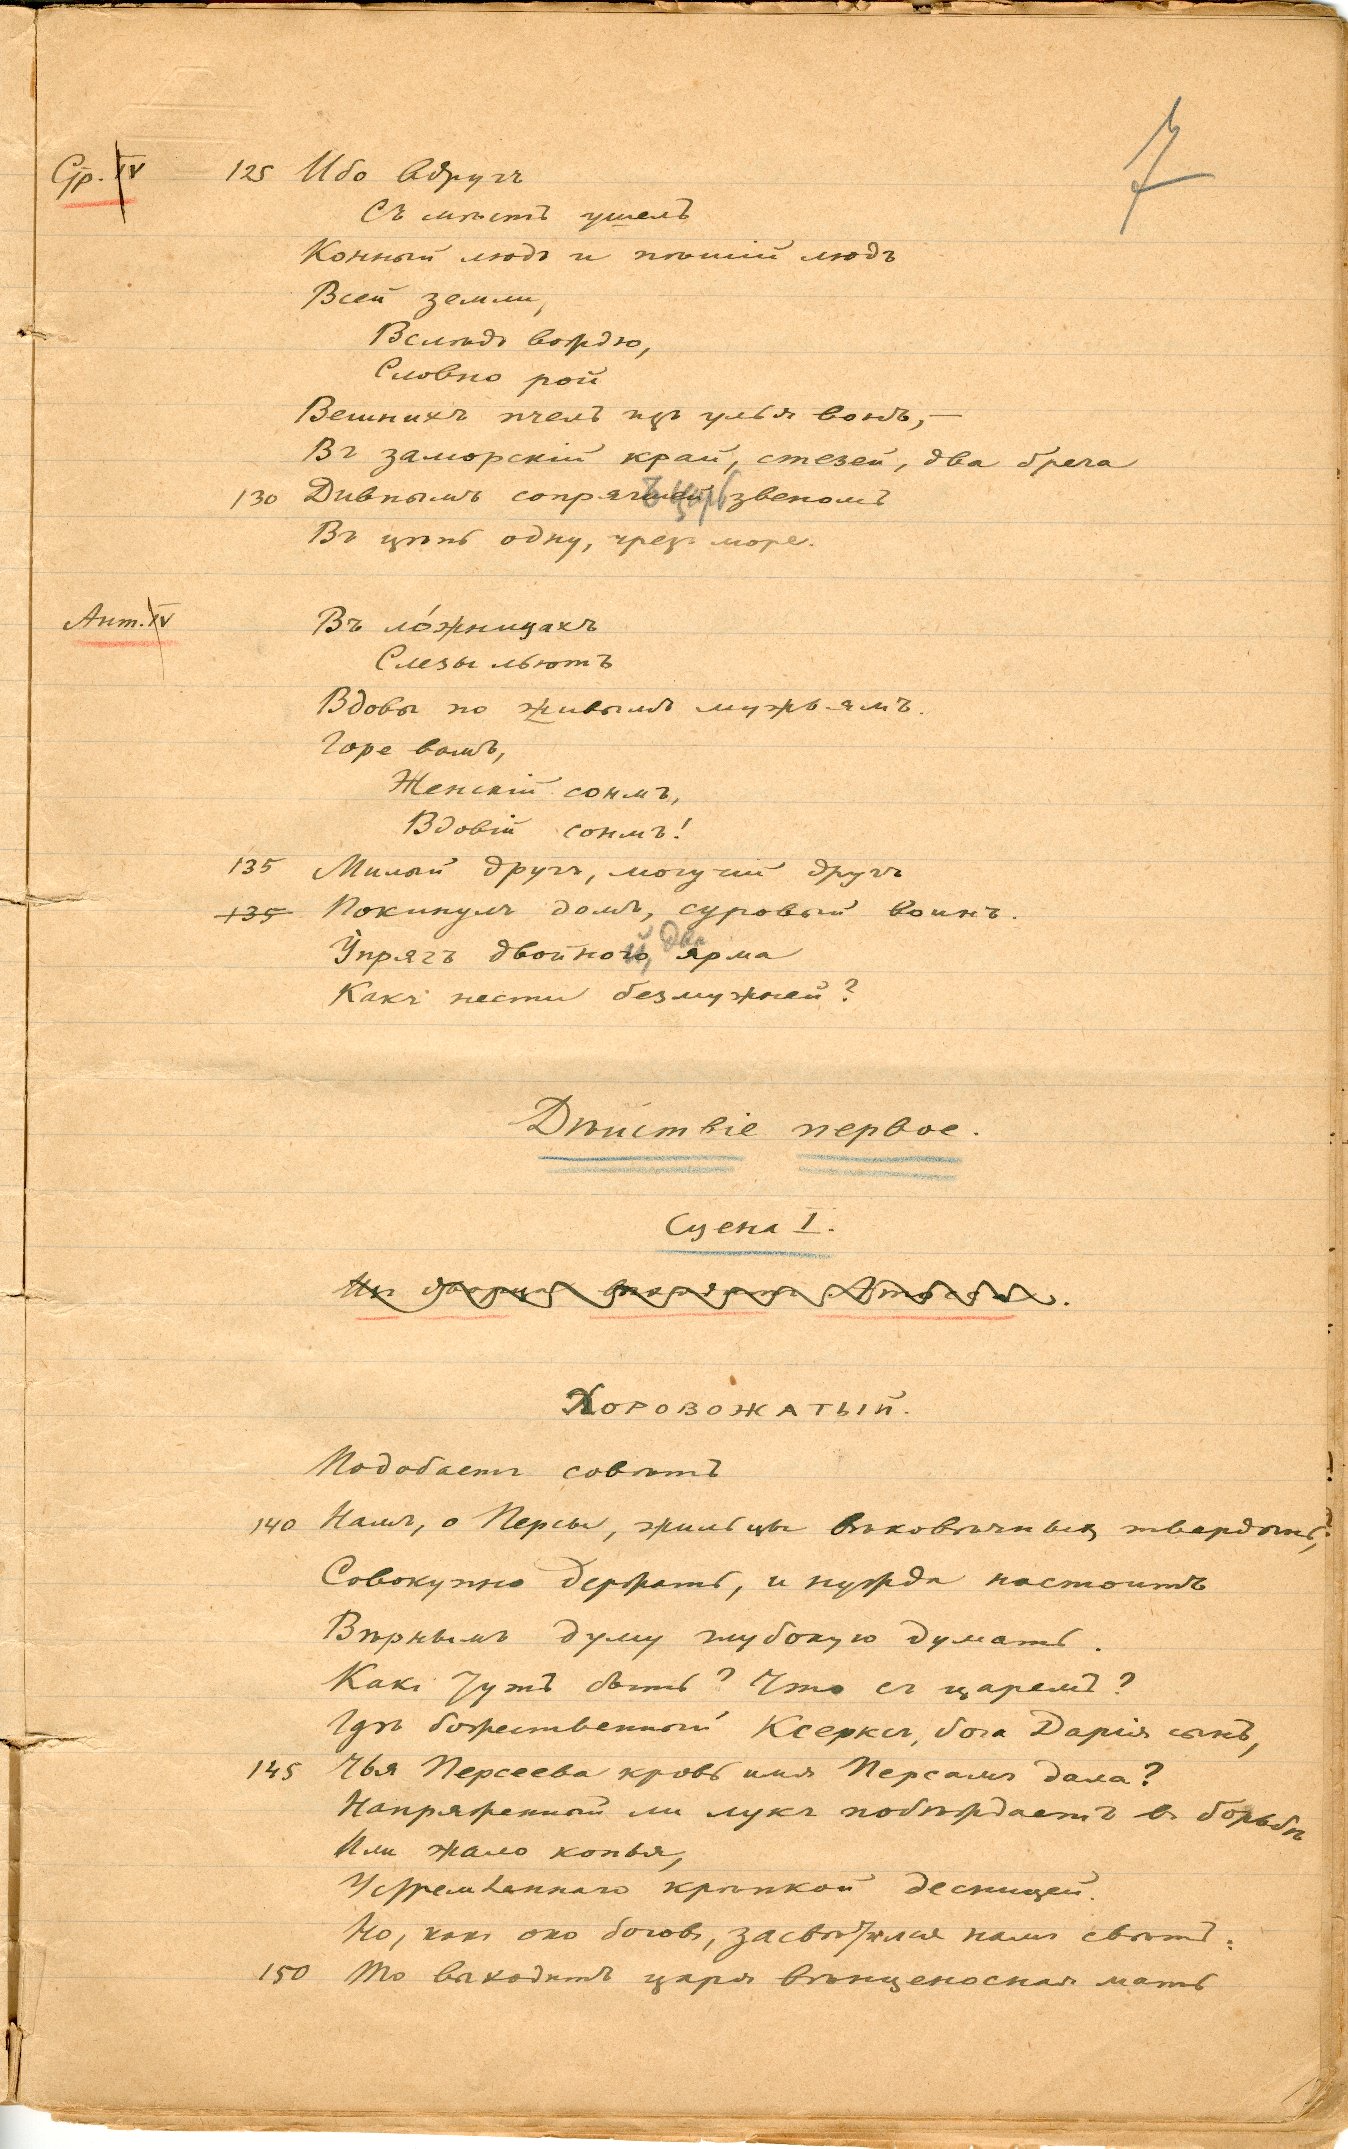 7
Стр. IV 125 Ибо вдругъ
Съ мѣстъ ушелъ
Конный людъ и пѣшій людъ
Всей земли,
Вслѣдъ вождю,
Словно рой
Вешнихъ пчелъ изъ улья вонъ,—
Въ заморскій край, стезей, два брега
130 Дивнымъ звеномъ
Въ цѣпь одну, чрезъ море.
Ант. IV Въ ло́жницахъ
Слезы льютъ
Вдовы по живымъ мужьямъ.
Горе вамъ,
Женскій сонмъ,
Вдовій сонмъ!
135 Милый другъ, могучій другъ
135 Покинулъ домъ, суровый воинъ.
Упрягъ двойного ярма
Какъ нести безмужней?
Дѣйствіе первое.
Сцена I.
Хоровожатый.
Подобаетъ совѣтъ
140 Намъ, о Персы, жильцы вѣковѣчныхъ твердынь,
Совокупно держать, и нужда настоитъ
Вѣрнымъ думу глубокую думать.
Какъ тутъ быть? Что съ царемъ?
Гдѣ божественный Ксерксъ, бога Дарія сынъ,
145 Чья Персеева кровь имя Персамъ дала?
Напряженный ли лукъ побѣждаетъ въ борьбѣ
Или жало копья,
Устремленнаго крѣпкой десницей.
Но, какъ око боговъ, засвѣтился намъ свѣтъ:
150 То выходитъ царя вѣнценосная мать